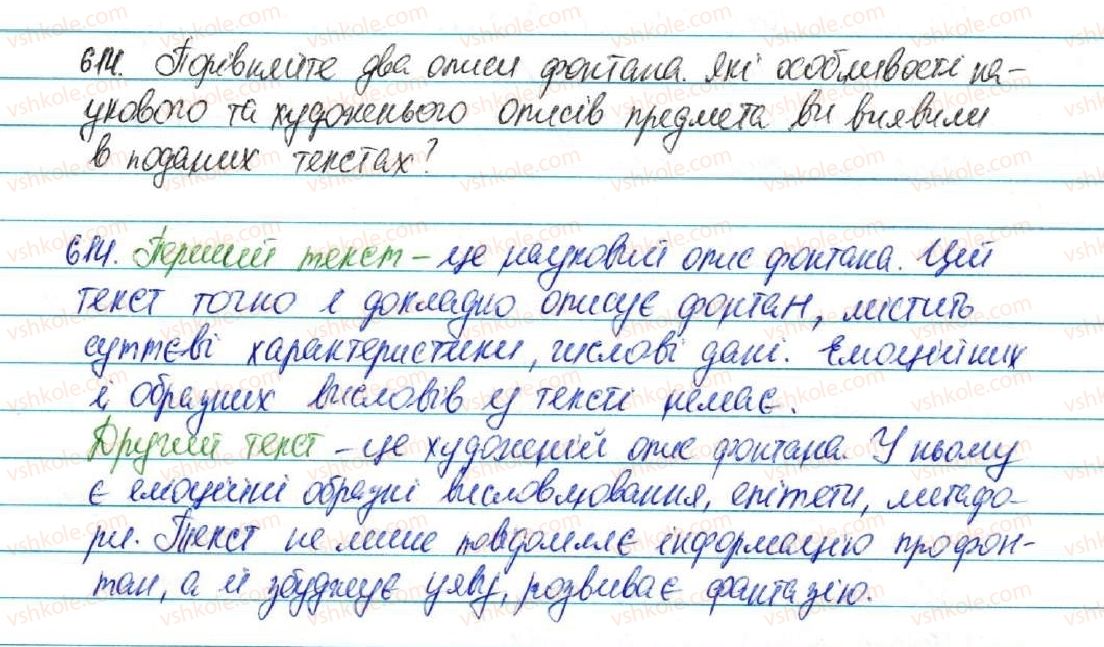 614. Порівняйте два описи фонтана. Які особливості на-
укового та художнього описів предмета ви виявили
в поданих текстах?
614. Перший текст – це науковий опис фонтана. Цей
текст точно і докладно описує фонтан, містить
суттєві характеристики, числові дані. Емоційних
і образних висловів у тексті немає.
Другий текст – це художній опис фонтана. У ньому
є емоційні образні висловлювання, епітети, метафо-
ри. Текст не лише повідомляє інформацію про фон-
тан, а й збуджує уяву, розвиває фантазію.
vshkole.com